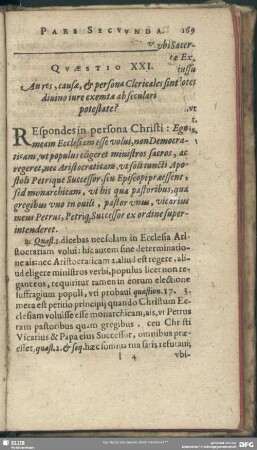 PARS SECVNDA. 169
v. vbi Sacer-
tæ Ex-
iussu
QVÆSTIO XXI.
An res, causæ, & personæ Clericales sint omnes
diuino iure exemtæ ab seculari
potestate?
REspondes in persona Christi: Ego
meam Ecclesiam esse volui, non Democra-
ticam, vt populus eligeret ministros sacros, ac
regeret, nec Aristocraticam, vt soli iuncti Apo-
stoli Petrique Successor, seu Episcopi præessent,
sed monarchicam, vt his qua pastoribus, qua
gregibus vno in ouili, pastor vnus, vicarius
meus Petrus, Petriq; Successor ex ordine super-
intenderet.
Quæst. 1. dicebas nec solam in Ecclesia Ari-
stocratiam volui: hic autem sine determinatio-
ne ais: nec Aristocraticam 2. aliud est regere, ali-
ud eligere ministros verbi, populus licet non re-
gant eos, requiritur tamen in eorum electione
suffragium populi, vti probaui quæstion. 17. 3.
mera est petitio principij quando Christum Ec-
clesiam voluisse esse monarchicam, ais, vt Petrus
tam pastoribus quam gregibus, ceu Christi
Vicarius & Papa eius Successor, omnibus præ-
esset, quæst. 1. & seq. hæc somnia tua satis refutaui,
l 4 vbi-
SLUB
DFG